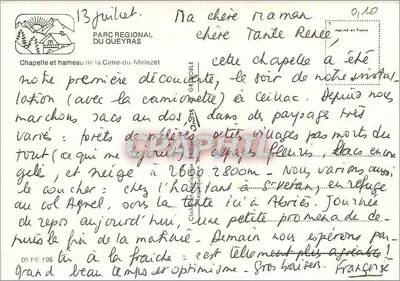 0,10
13 juillet.
Ma chère maman
chère Tante Renée
PARC REGIONAL
DU QUEYRAS
Chapelle et hameau de la Cime-du-Mélezet
cette chapelle a été
notre première découverte, le soir de notre instal-
lation (avec la camionnette) à Ceillac. Depuis nous
marchons sacs au dos, dans des paysages très
variés : forêts de mélèzes petits villages pas morts du
tout (ce qui me réjouit) alpages fleuris. Lacs encore
gelé, et neige à 2600 2800m. Nous varions aussi
le coucher : chez l'habitant à St Véran, en refuge
au col Agnel, sous la tente ici à Abriès. Journée
de repos aujourd'hui, une petite promenade de-
puis la fin de la matinée. Demain nous espérons par-
tir à la fraîche : c'est tellement plus agréable !
05 PE 196
Grand beau temps et optimisme. Gros baisers. Françoise
CPAPHIL